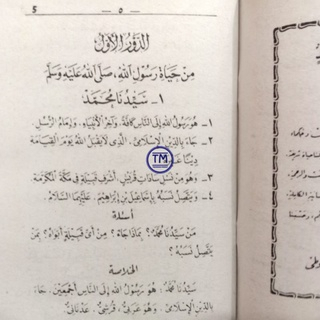 5 - ٥ -
الدَّوْرُ الْأَوَّلُ
مِنْ حَيَاةِ رَسُولِ اللهِ، صَلَّى اللهُ عَلَيْهِ وَسَلَّمَ
١- سَيِّدُنَا مُحَمَّدٌ
١- هُوَ رَسُولُ اللهِ إِلَى النَّاسِ كَافَّةً، وَآخِرُ الْأَنْبِيَاءِ، وَإِمَامُ الرُّسُلِ.
٢- جَاءَ بِالدِّينِ الْإِسْلَامِيِّ، الَّذِي لَا يَقْبَلُ اللهُ يَوْمَ الْقِيَامَةِ
دِينًا
TM
٣- وَهُوَ مِنْ نَسْلِ سَادَاتِ قُرَيْشٍ، أَشْرَفِ قَبِيلَةٍ فِي مَكَّةَ الْمُكَرَّمَةِ.
٤- وَيَتَّصِلُ نَسَبُهُ بِإِسْمَاعِيلَ بْنِ إِبْرَاهِيمَ، عَلَيْهِمَا السَّلَامُ.
أَسْئِلَة
مَنْ سَيِّدُنَا مُحَمَّدٌ؟ بِمَاذَا جَاءَ؟ مِنْ أَيِّ قَبِيلَةٍ هُوَ؟ بِمَنْ
يَتَّصِلُ نَسَبُهُ؟
الْخُلَاصَة
سَيِّدُنَا مُحَمَّدٌ: هُوَ رَسُولُ اللهِ إِلَى النَّاسِ أَجْمَعِينَ، جَاءَ
بِالدِّينِ الْإِسْلَامِيِّ، وَهُوَ عَرَبِيٌّ، قُرَشِيٌّ، عَدْنَانِيٌّ.